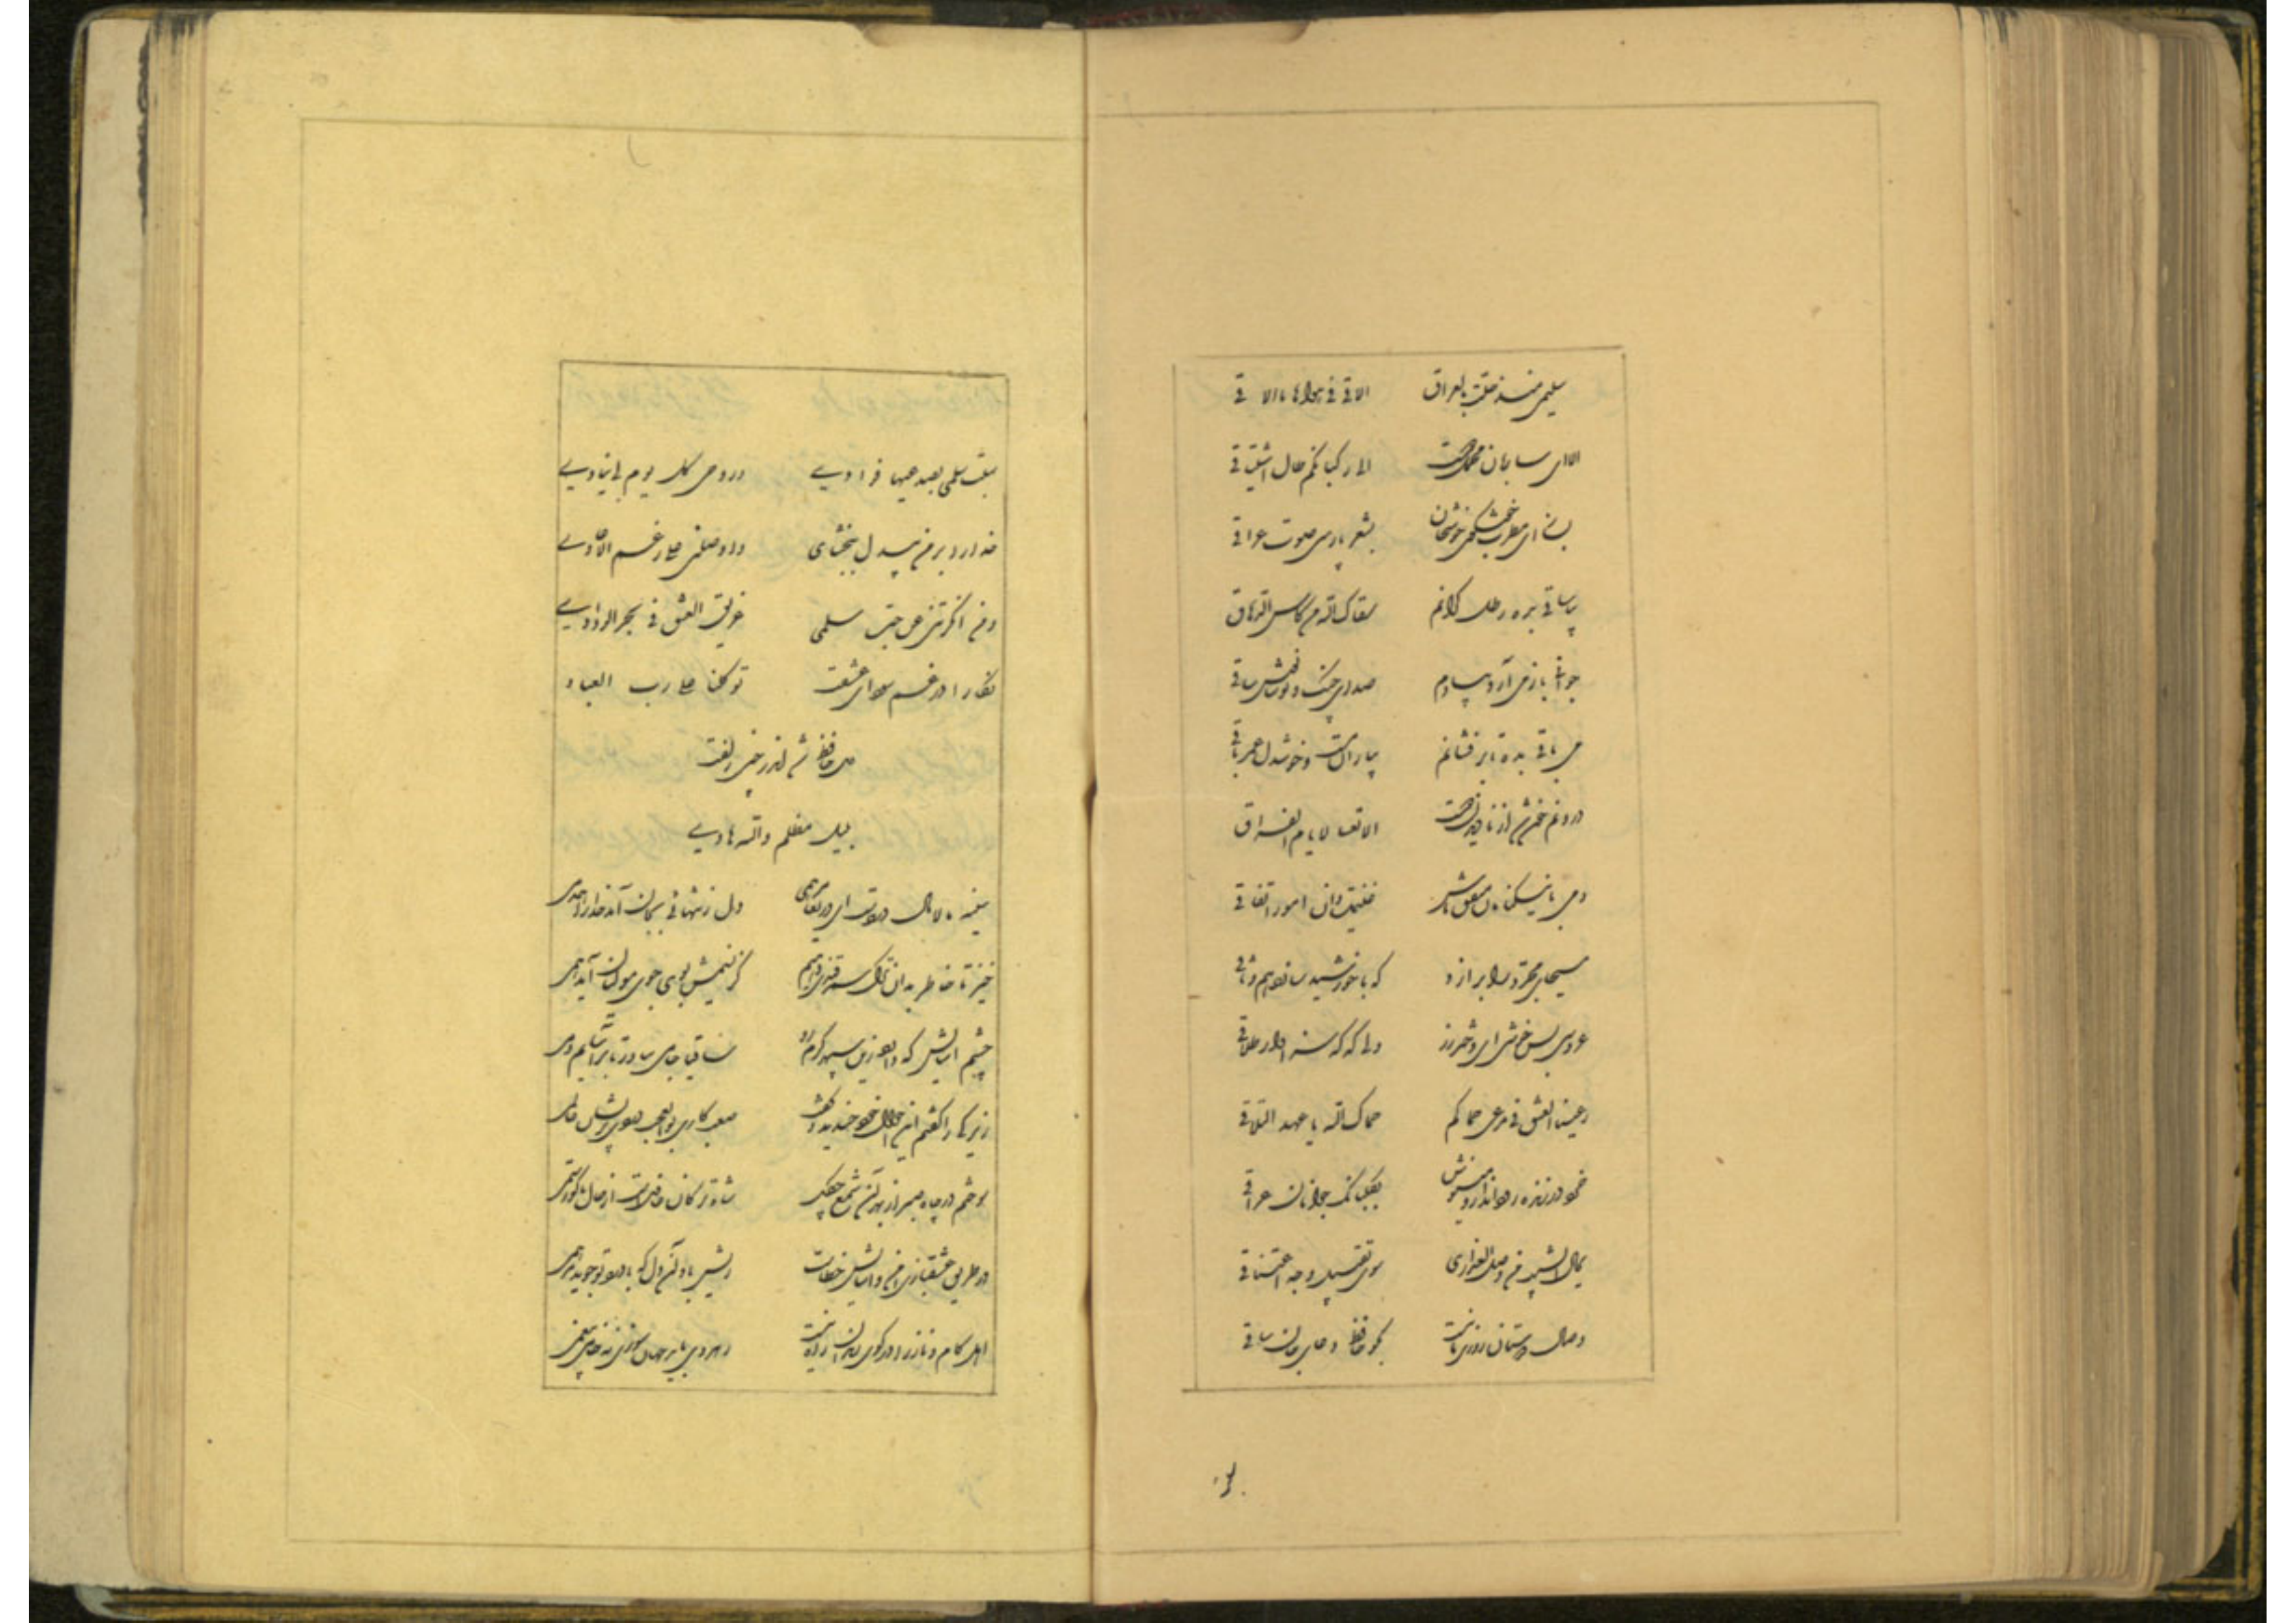 سلیمی منذ حلت بالعراق الاقی فی هواها ما الاقی
الا ای ساربان محمل دوست الی رکبانکم طال اشتیاقی
بساز ای مطرب خوشخوان بشعر پارسی صوت عراقی
بیا ساقی بده رطل گرانم سقاک الله من کاس الدهاق
جوانی باز می آرد بیادم صدای چنگ و نوشانوش ساقی
می باقی بده تا برفشانم بیاران مست و خوشدل عمر باقی
درونم خون شد از نادیدن دوست الا تعسا لایام الفراق
دمی با نیکخواهان متفق باش غنیمت دان امور اتفاقی
مسیحای مجرد را برازد که با خورشید سازد هم وثاقی
عروسی بس خوشی ای دختر رز ولی گه گه سزاوار طلاقی
ربیع العمر فی مرعی حماکم حماک الله یا عهد التلاقی
خرد در زنده رود انداز و می نوش بگلبانگ جوانان عراقی
نهال الشیب من وصل العذاری سوی تقبیل وجه اعتناقی
وصال دوستان روزی ما نیست بگو حافظ دعای جان ساقی
سبت سلمی بصدغیها فؤادی و روحی کل یوم لی ینادی
خدارا بر من بیدل ببخشای و واصلنی علی رغم الاعادی
و من انکرتنی عن حب سلمی غریق العشق فی بحر الودادی
نگارا در غم سودای عشقت توکلنا علی رب العباد
دل حافظ شد اندر چین زلفت
بلیل مظلم و الله هادی
سینه مالامال دردست ای دریغا مرهمی دل ز تنهائی بجان آمد خدا را همدمی
خیز تا خاطر بدان ترک سمرقندی دهیم کز نسیمش بوی جوی مولیان آید همی
چشم آسایش که دارد زین سپهر گرم رو ساقیا جامی بیاور تا برآسایم دمی
زیرکی را گفتم این احوال بین خندید و گفت صعب کاری بوالعجب دردی پریشان عالمی
سوختم در چاه صبر از بهر آن شمع چگل شاه ترکان فارغست از حال ما کو رستمی
در طریق عشقبازی امن و آسایش خطاست ریش باد آن دل که با درد تو جوید مرهمی
اهل کام و ناز را در کوی رندان راه نیست رهروی باید جهان سوزی نه خامی بیغمی